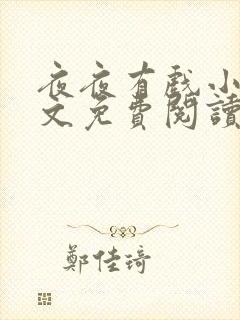 夜夜有戲小
文免費閱讀
鄭佳琦